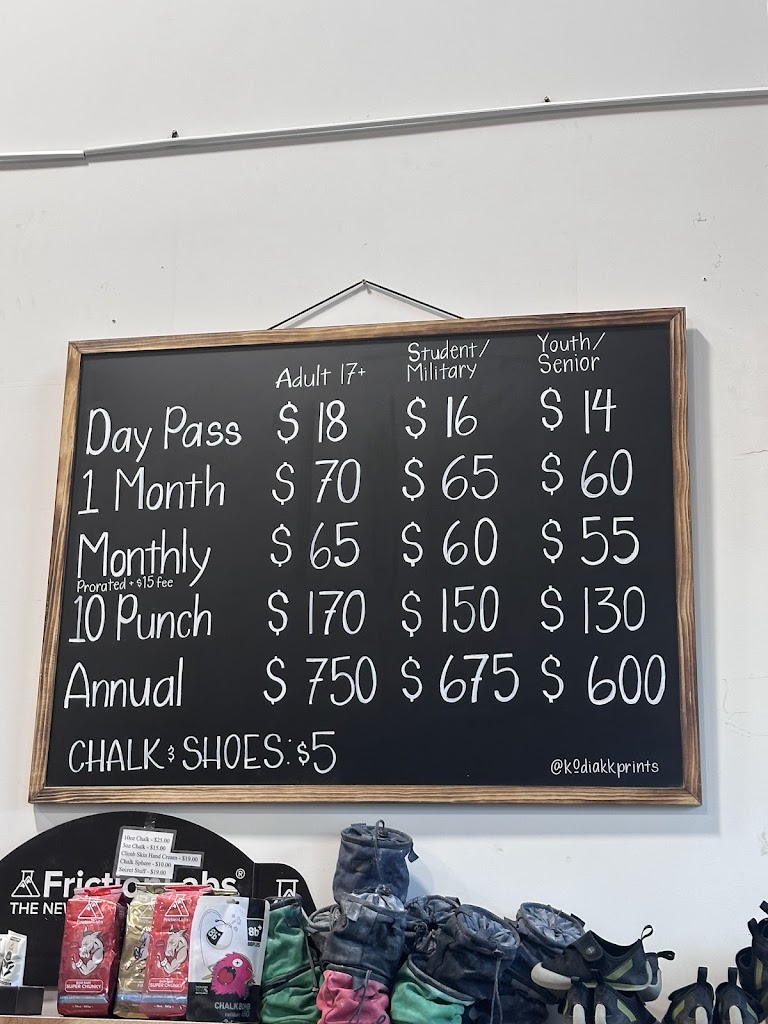 Adult 17+ Student/ Military Youth/ Senior
Day Pass $ 18 $ 16 $ 14
1 Month $ 70 $ 65 $ 60
Monthly $ 65 $ 60 $ 55
Prorated + $15 fee
10 Punch $ 170 $ 150 $ 130
Annual $ 750 $ 675 $ 600
CHALK & SHOES: $5
@kodiakkprints
10oz Chalk - $25.00
5oz Chalk - $15.00
Climb Skin Hand Cream - $19.00
Chalk Sphere - $10.00
Secret Stuff - $19.00
FrictionLabs®
THE NEW
FrictionLabs
SUPER CHUNKY
FrictionLabs
SUPER CHUNKY
8b+
8b+
CHALK